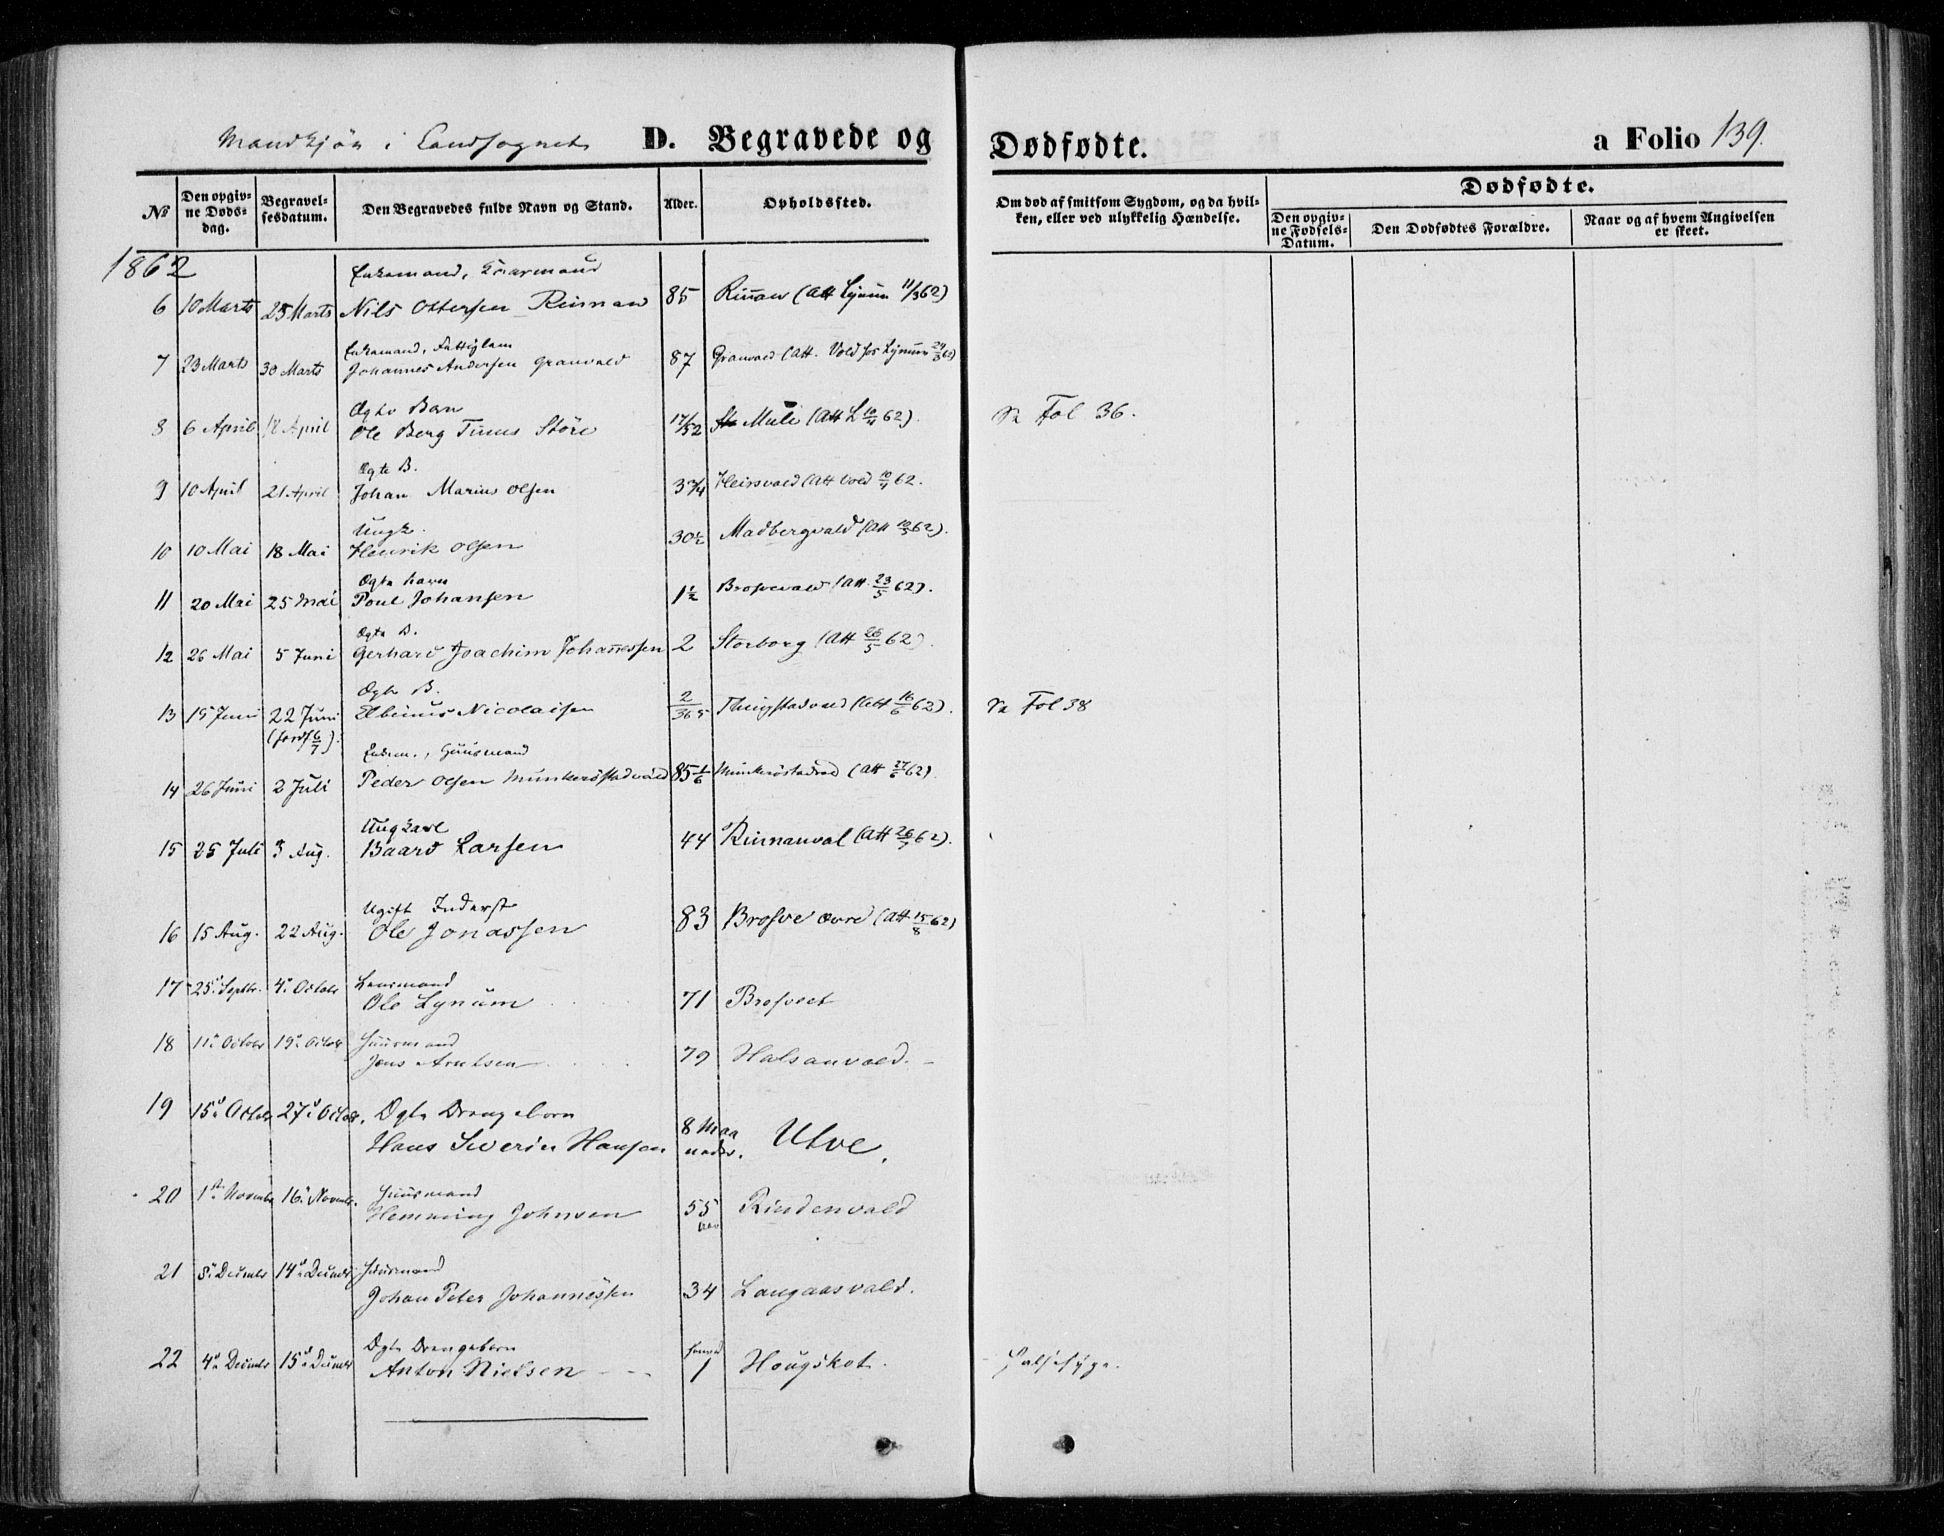 Mandkjøn i Landsognet D. Begravede og Dødfødte. a Folio 139.
№ Den opgivne Dødsdag. Begravelsesdatum. Den Begravedes fulde Navn og Stand. Alder. Opholdssted. Om død af smitsom Sygdom, og da hvilken, eller ved ulykkelig Hændelse. Dødfødte.
Den opgivne Fødsels-Datum. Den Dødfødtes Forældre. Naar og af hvem Angivelsen er skeet.
1862
Enkemand, Kaarmand
6 10 Marts 25 Marts Nils Ottersen Rinnan 85 Rinnan (Att Lynum 11/3 62)
Enkemand, Fattiglem
7 23 Marts 30 Marts Johannes Andersen Granvald 87 Granvald (Att. Vold for Lynum 24/3 62)
Ægte Barn
8 6 April 12 April Ole Berg Störe 17/52 Mule (Att L 10/4 62). Se Fol 36.
Ægte B.
9 10 April 21 April Johan Marius Olsen 3 3/4 (Att Vold 10/4 62.
Ungk.
10 10 Mai 18 Mai Henrik Olsen 30 1/2 Madbergvald (Att 12/5 62).
Ægte barn
11 20 Mai 25 Mai Poul Johansen 1 1/2 Brosvevald (Att. 23/5 62).
Ægte B.
12 26 Mai 5 Juni Gerhard Joachim Johannessen 2 Storborg (Att 26/5 62).
Ægte B.
13 15 Juni 22 Juni Elbinus Nicolaisen 2/365 Thingstadvald (Att 16/6 62). Se Fol 38
(Jordf 6/7).
Enkem., Huusmand
14 26 Juni 2 Juli Peder Olsen Munkerøstadvald 85 1/6 Munkrøstadvald (Att 27/6 62).
Ungkarl
15 25 Juli 3 Aug. Baard Larsen 44 Rinnanval (Att 26/7 62).
Ugift Inderst
16 15 Aug. 22 Aug. Ole Jonassen 83 Brosve øvre (Att 15/8 62)
17 25. Septbr. 4. Octobr Lensmand
Ole Lynum 71 Brosveet
18 11. Octobr 19. Octobr Huusmand
Jens Arntsen 79 Halsanvald.
19 15. Octobr 27. Octobr. Ægte Drengebarn
Hans Severin Hansen 8 Maaneder. Utve.
20 1ste November 16. Novembr. Huusmand
Hemming Johnsen 55 Rindenvald
21 5. Decembr 14. Decembr Huusmand
Johan Peter Johannessen 34 Langaasvald.
22 4. Decembr 15. Decembr Ægte Drengebarn
Anton Nielsen 1 Hougskot. Halssyge.